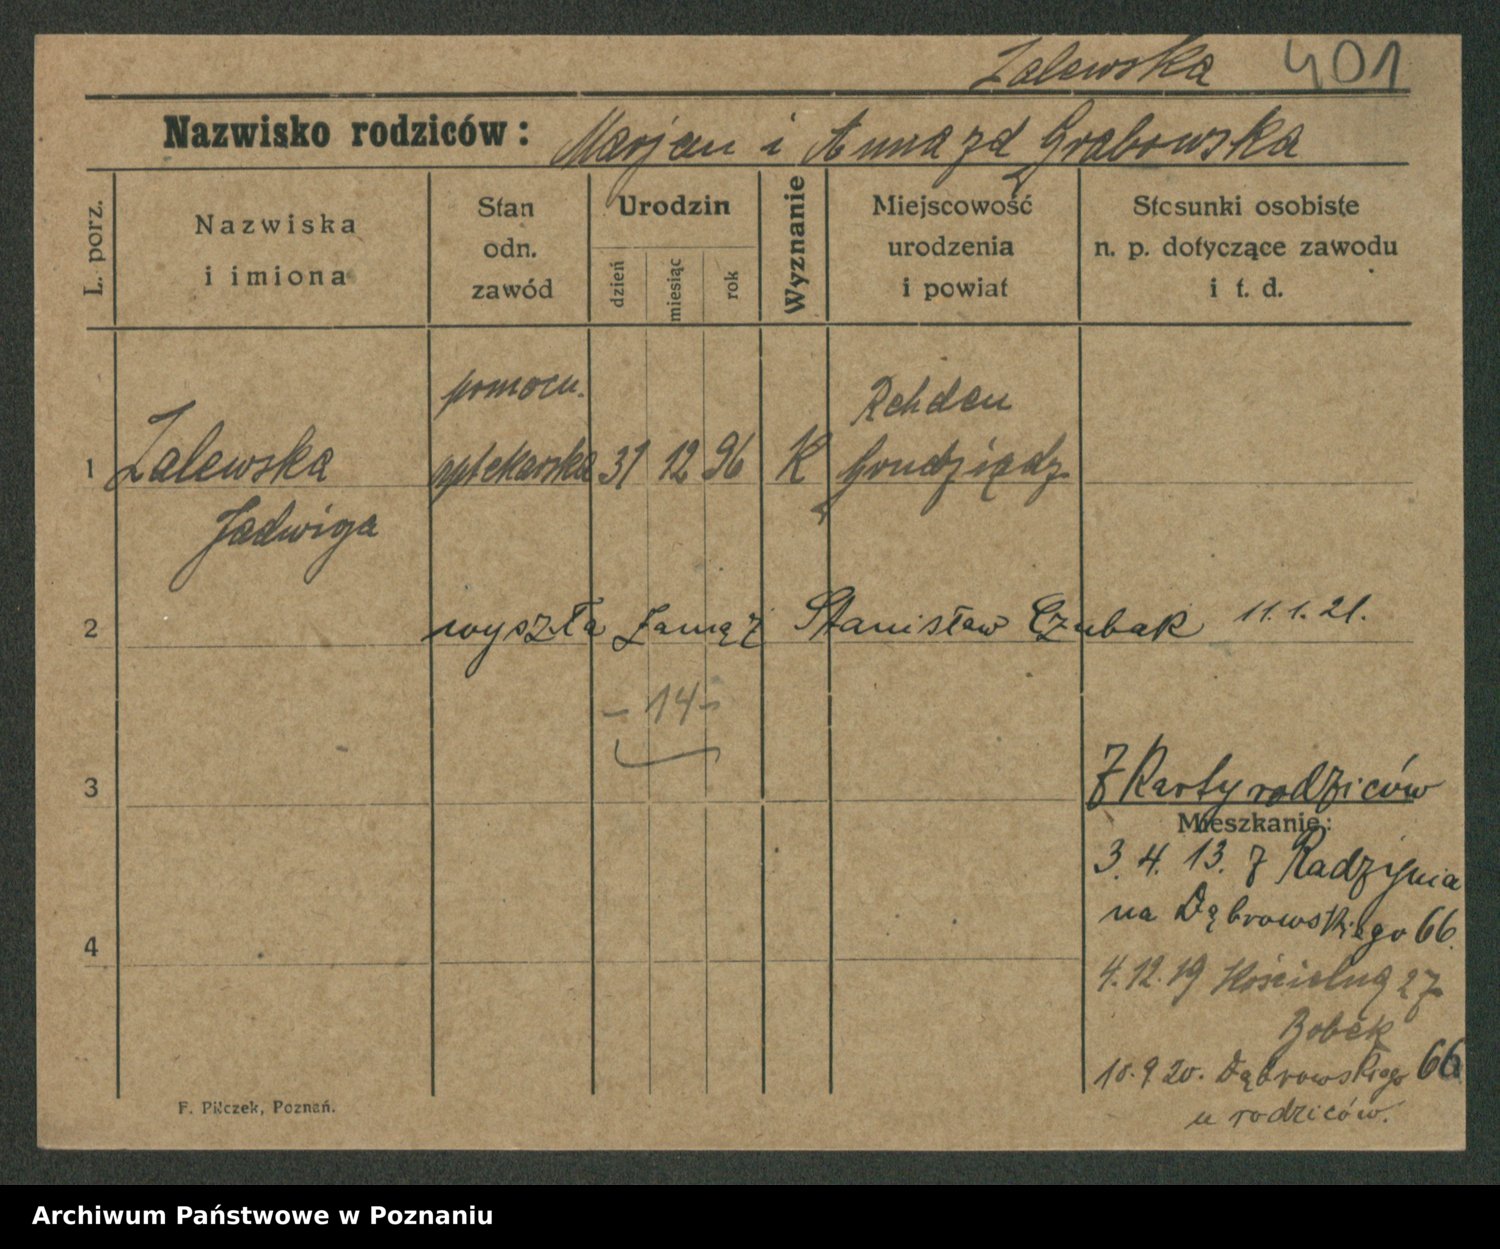 Zalewska 401
Nazwisko rodziców: Marjan i Anna zd Grabowska
L. porz.
Nazwiska
i imiona
Stan
odn.
zawód
Urodzin
dzień
miesiąc
rok
Wyznanie
Miejscowość
urodzenia
i powiat
Stosunki osobiste
n. p. dotyczące zawodu
i t. d.
pomocn. Rehden
1 Zalewska aptekarska 31 12 96 K Grudziądz
Jadwiga
2 wyszła zamąż Stanisław Czubak 11.1.21.
- 14 -
3 Z Karty rodziców
Mieszkanie:
3. 4. 13. z Radzynia
na Dąbrowskiego 66.
4
4.12.19 Kościelną 27
Bobek
10.9 20. Dąbrowskiego 66
u rodziców.
F. Pilczek, Poznań.
Archiwum Państwowe w Poznaniu